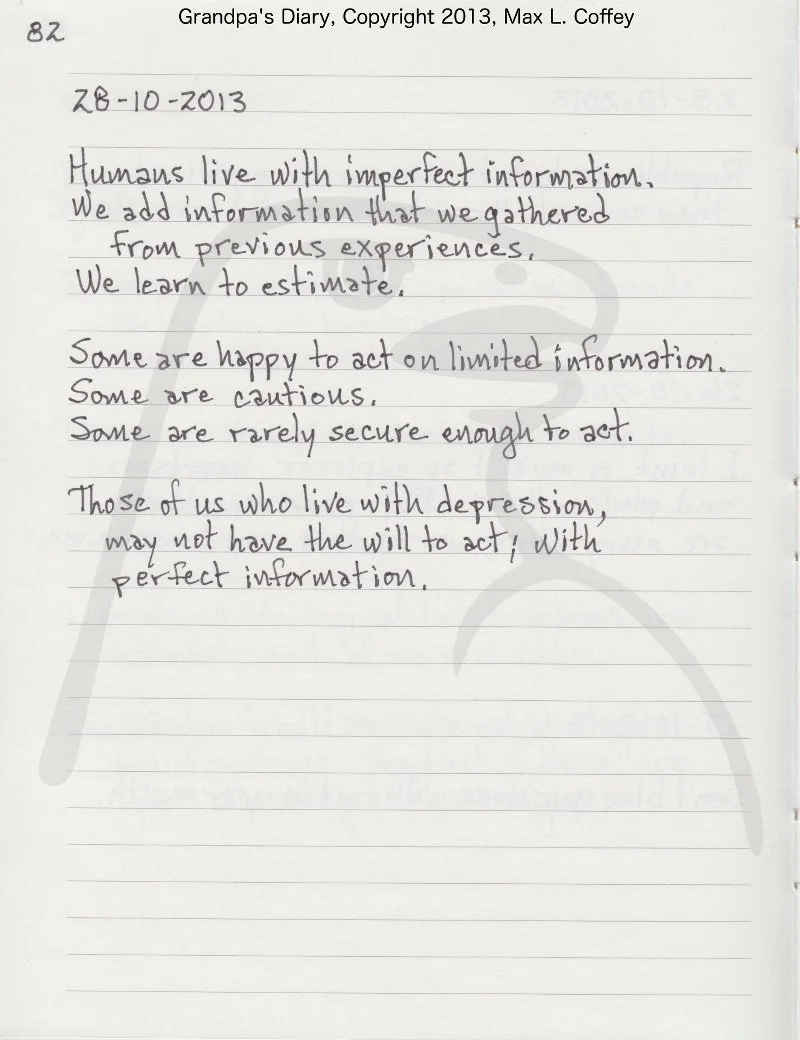 Grandpa's Diary, Copyright 2013, Max L. Coffey
82
28-10-2013
Humans live with imperfect information.
We add information that we gathered
from previous experiences.
We learn to estimate.
Some are happy to act on limited information.
Some are cautious.
Some are rarely secure enough to act.
Those of us who live with depression,
may not have the will to act; with
perfect information.